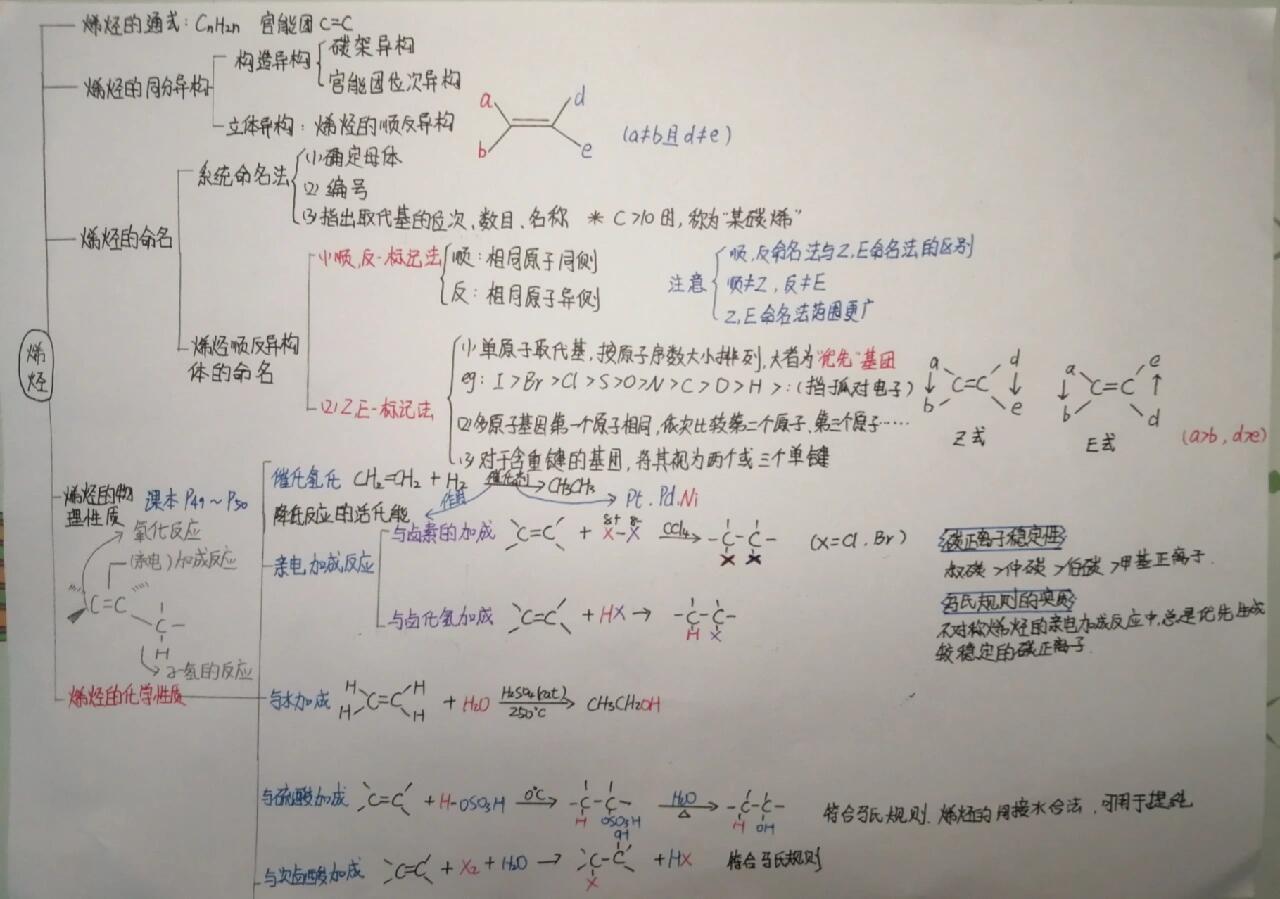 烯烃的通式：CnH2n 官能团 C=C
烯烃的同分异构
构造异构
碳架异构
官能团位次异构
立体异构：烯烃的顺反异构
a
d
b
e
(a≠b且d≠e)
烯烃的命名
系统命名法
(1)确定母体
(2) 编号
(3)指出取代基的位次、数目、名称 * C>10时,称为"某碳烯"
烯烃顺反异构
体的命名
(1)顺,反-标记法
顺：相同原子同侧
反：相同原子异侧
注意
顺,反命名法与Z,E命名法的区别
顺≠Z,反≠E
Z,E命名法范围更广
(2)Z,E-标记法
(1)单原子取代基,按原子序数大小排列,大者为"优先"基团
eg: I>Br>Cl>S>O>N>C>D>H>:(指孤对电子)
(2)多原子基团第一个原子相同,依次比较第二个原子、第三个原子……
(3)对于含重键的基团,将其视为两个或三个单键
a d
C=C
b e
Z式
a e
C=C
b d
E式
(a>b, d>e)
烯烃
烯烃的物
理性质
课本 P49~P50
氧化反应
(亲电)加成反应
C=C
C
H
α-氢的反应
烯烃的化学性质
催化氢化 CH2=CH2 + H2 催化剂 CH3CH3
作用
Pt.Pd.Ni
降低反应的活化能
亲电加成反应
与卤素的加成 C=C + X-X CCl4 -C-C- (X=Cl.Br)
δ+ δ-
X X
与卤化氢加成 C=C + HX → -C-C-
H X
碳正离子稳定性
叔碳>仲碳>伯碳>甲基正离子.
马氏规则的实质
不对称烯烃的亲电加成反应中,总是优先生成
较稳定的碳正离子.
与水加成 H H C=C H H + H2O H2SO4(cat) 250℃ CH3CH2OH
与硫酸加成 C=C + H-OSO3H 0℃ -C-C- H2O △ -C-C-
H OSO3H
H OH
符合马氏规则.烯烃的间接水合法,可用于提纯
与次卤酸加成 C=C + X2 + H2O → C-C + HX 符合马氏规则
OH
X